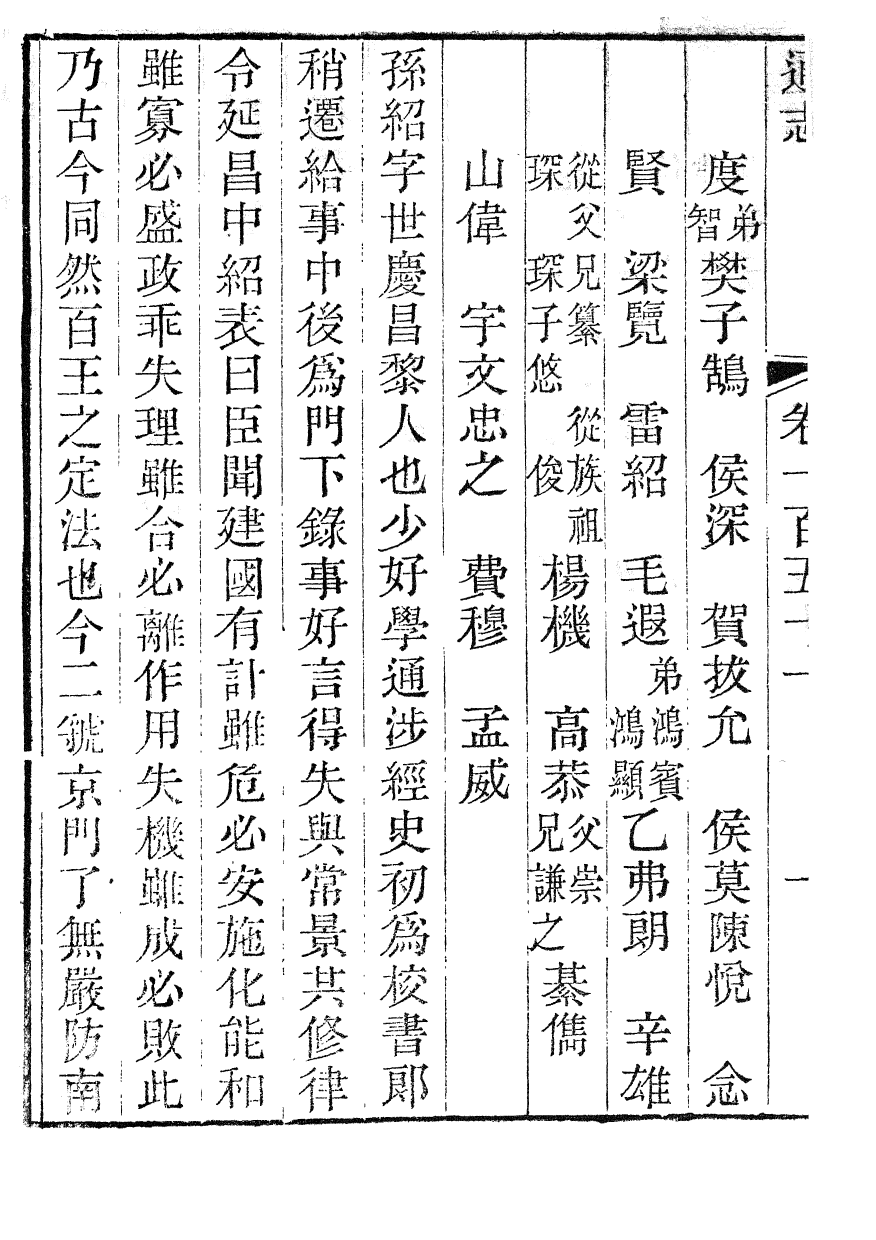 通志 卷一百五十一 一
度弟智樊子鵠 侯深 賀拔允 侯莫陳悅 念
賢 梁覽 雷紹 毛遐弟鴻賓鴻顯乙弗朗 辛雄
從父兄纂琛琛子悠從族祖俊楊機 高恭父崇兄謙之綦儁
山偉 宇文忠之 費穆 孟威
孫紹字世慶昌黎人也少好學通涉經史初爲校書郎
稍遷給事中後爲門下錄事好言得失與常景共修律
令延昌中紹表曰臣聞建國有計雖危必安施化能和
雖寡必盛政乖失理雖合必離作用失機雖成必敗此
乃古今同然百王之定法也今二虢京門了無嚴防南